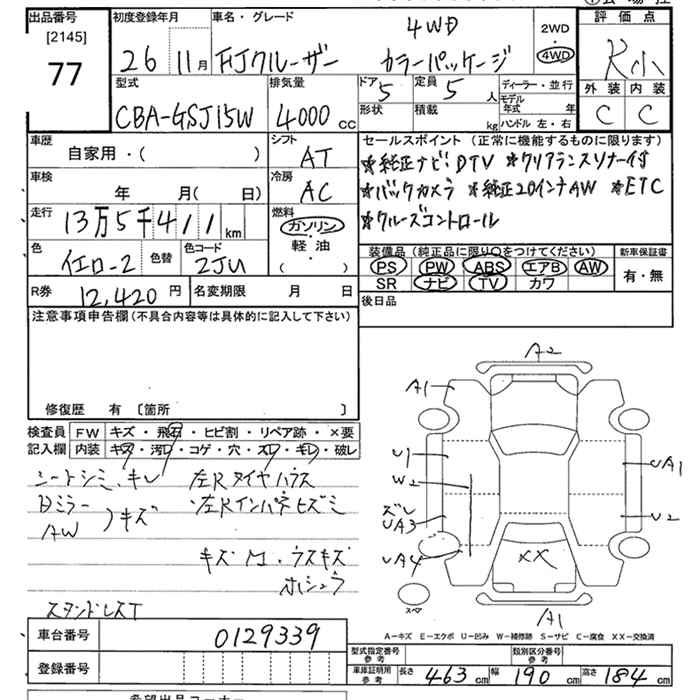 出品番号 初度登録年月 車名・グレード 4WD 2WD 評価点
[2145] ・
77 26 11月 FJクルーザー カラーパッケージ 4WD R小
型式 排気量 ドア 5 定員 5人 ディーラー・並行 外装 内装
CBA-GSJ15W 4000cc 形状 積載 kg モデル年式 年 C C
ハンドル 左・右
車歴 シフト セールスポイント (正常に機能するものに限ります)
自家用・( ) AT *純正ナビ・DTV *クリアランスソナー付
車検 冷房 *バックカメラ *純正20インチAW *ETC
年 月( 日) AC *クルーズコントロール
走行 燃料
13万5千411km ガソリン
軽油
( ・ )
色 色替 色コード 装備品 (純正品に限り○をつけてください) 新車保証書
イエロ-2 2JU PS PW ABS エアB AW 有・無
SR ナビ TV カワ
R券 12,420円 名変期限 月 日 後日品
注意事項申告欄 (不具合内容等は具体的に記入して下さい)
修復歴 有 〔箇所 〕
検査員 FW キズ・飛石・ヒビ割・リペア跡・×要
記入欄 内装 キズ・汚レ・コゲ・穴・スレ・キレ・破レ
シートシミ、キレ 左Rタイヤハウス
Bミラー 左Rインパネヒズミ
AW )キズ
キズM・ウスキズ
ホシュウ
スタンドレスT
A2
A1
U1
W2
ズレ
UA3
UA4
UA1
U2
XX
スペア
A1
A-キズ E-エクボ U-凹み W-補修跡 S-サビ C-腐食 XX-交換済
車台番号 0129339
登録番号
型式指定番号 参考 類別区分番号 参考
車庫証明用 参考 長さ 463cm 幅 190cm 高さ 184cm